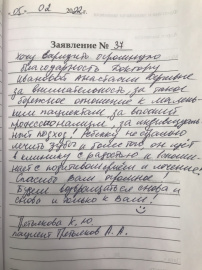 05. 02 2022г.
Заявление № 37
Хочу выразить огромную
благодарность доктору
Ивановой Анастасии
за внимательность, за такое
бережное отношение к малень-
ким пациентам, за высокий
профессионализм, за индивидуаль-
ный подход! Ребенку не больно
лечить зубы и более того он идёт
в клинику с радостью и
с позитивом приём и лечение.
Спасибо Вам огромное!
Будем возвращаться снова и
снова и только к Вам!
К. Ю
пациент А. А.